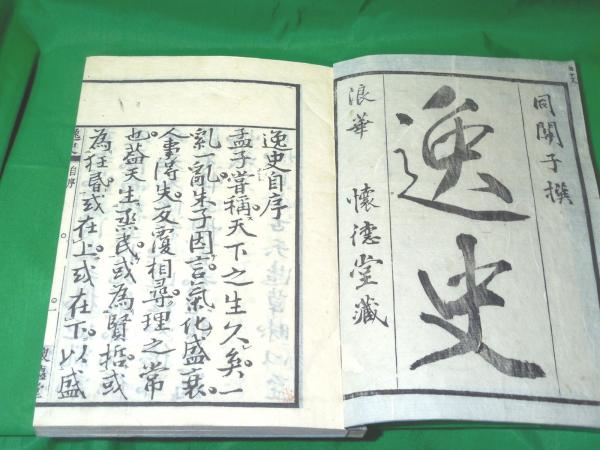 同關子撰
逸史
浪華 懷德堂藏
逸史自序
孟子嘗稱天下之生久矣一
亂一亂朱子因言氣化盛衰
人事得失反覆相尋理之常
也蓋天生烝民或為賢哲或
為狂昏或在上或在下以盛
逸史 自序 一